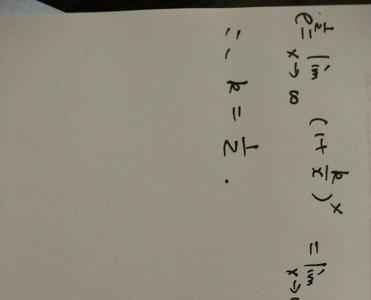 e^{\frac{1}{2}} = \lim_{x \to \infty} (1 + \frac{k}{x})^x = \lim_{x \to
∴ k = \frac{1}{2}.